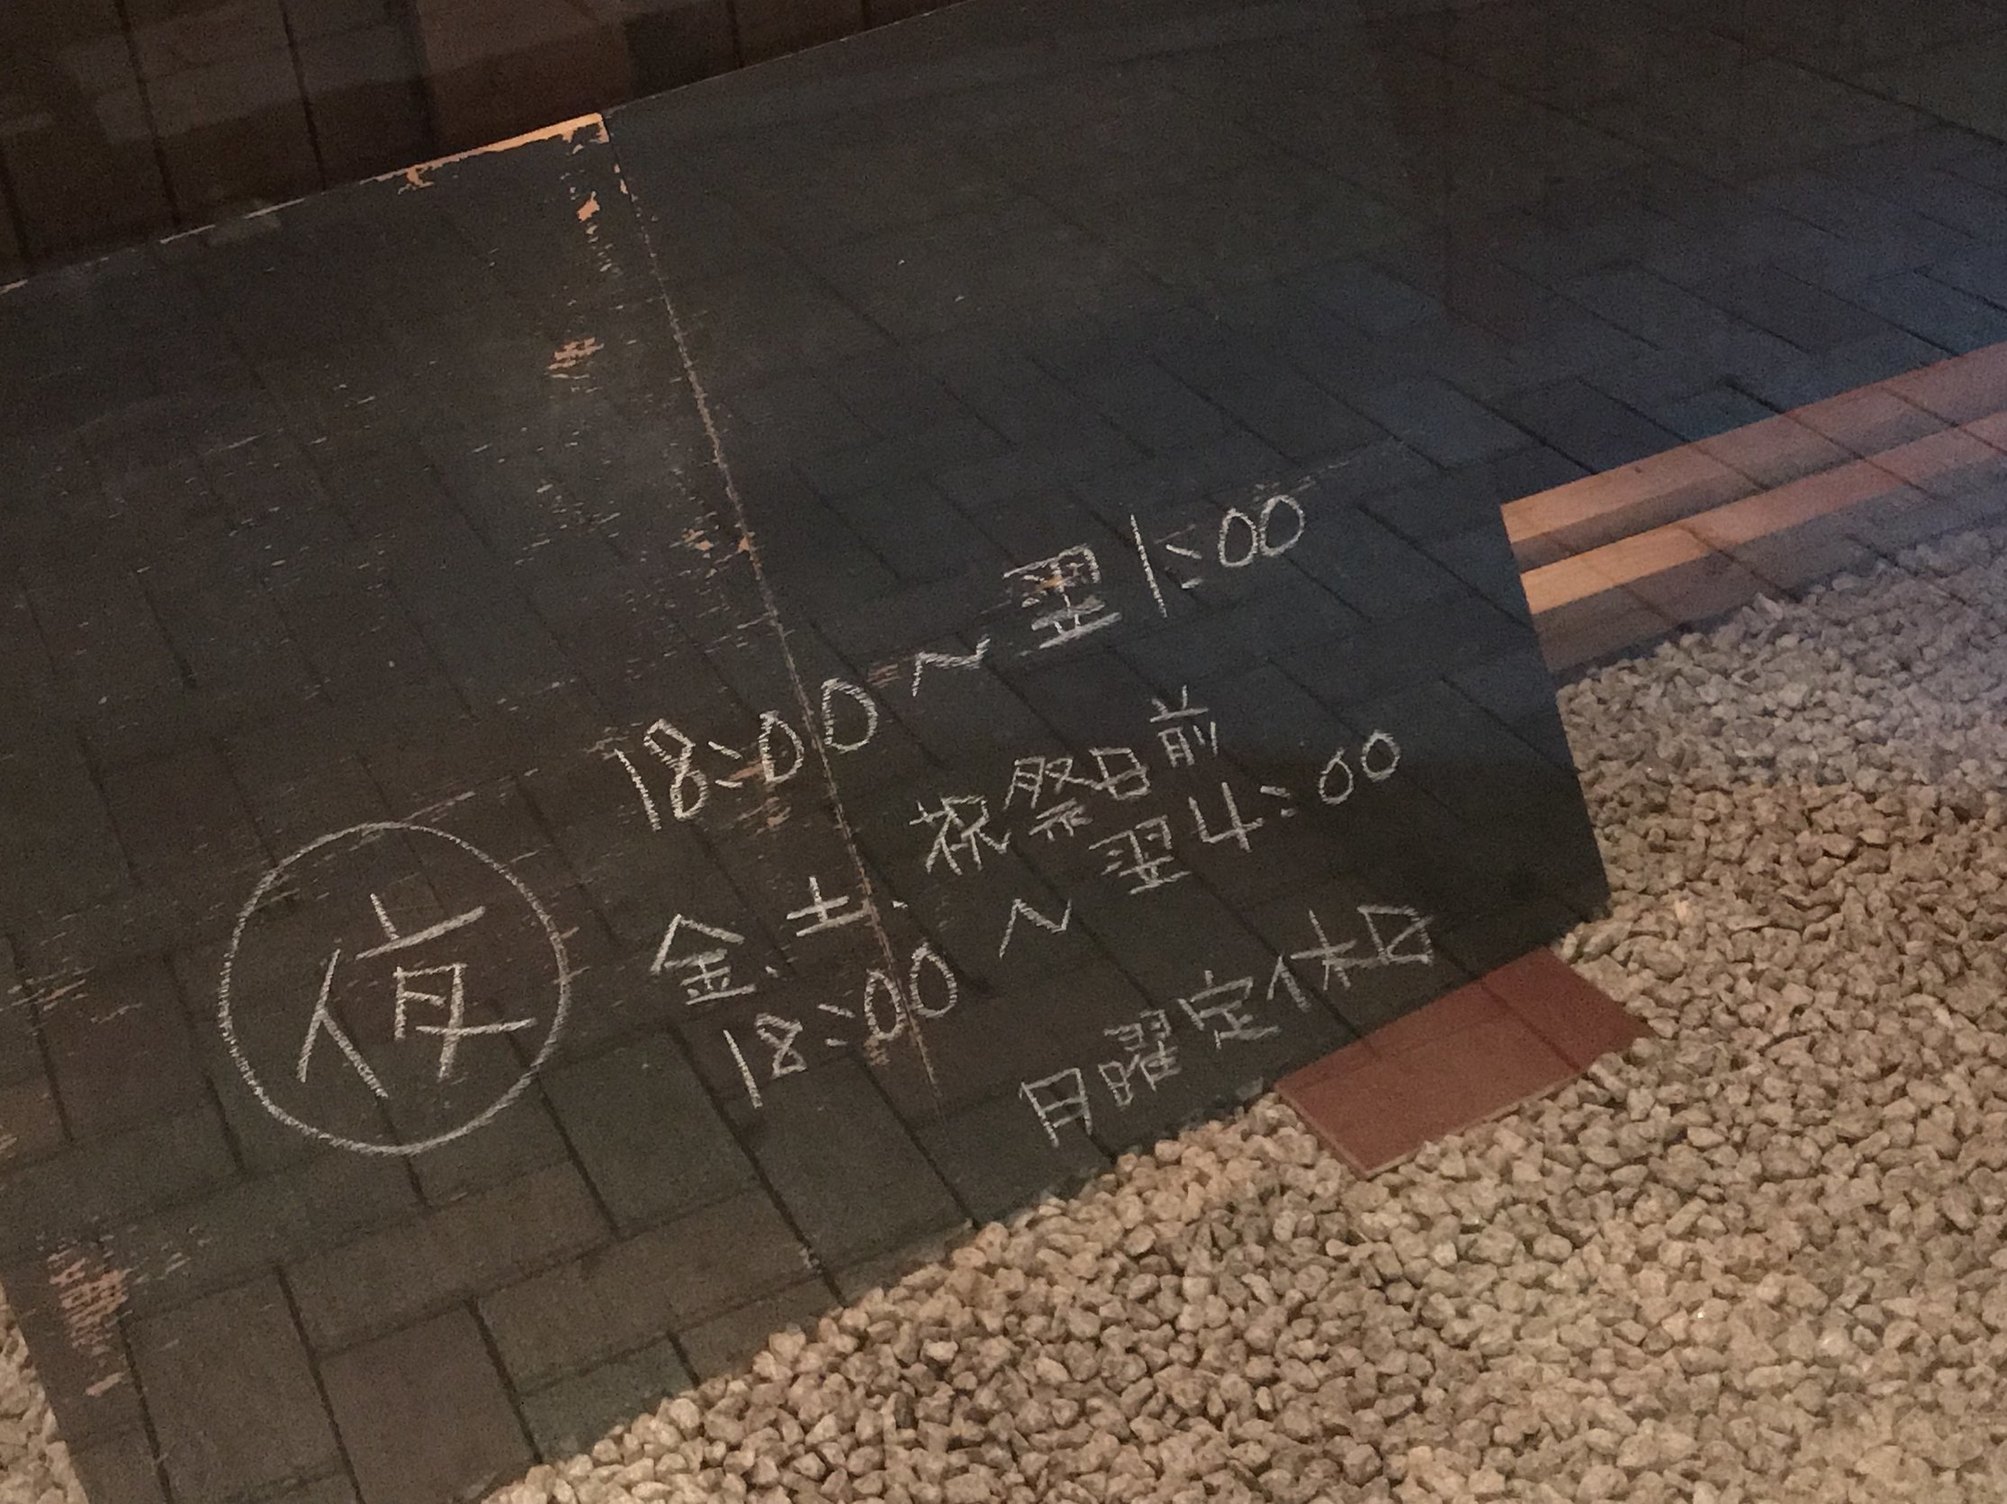 夜
18:00〜翌1:00
金、土、祝祭日前
18:00〜翌4:00
日曜定休日